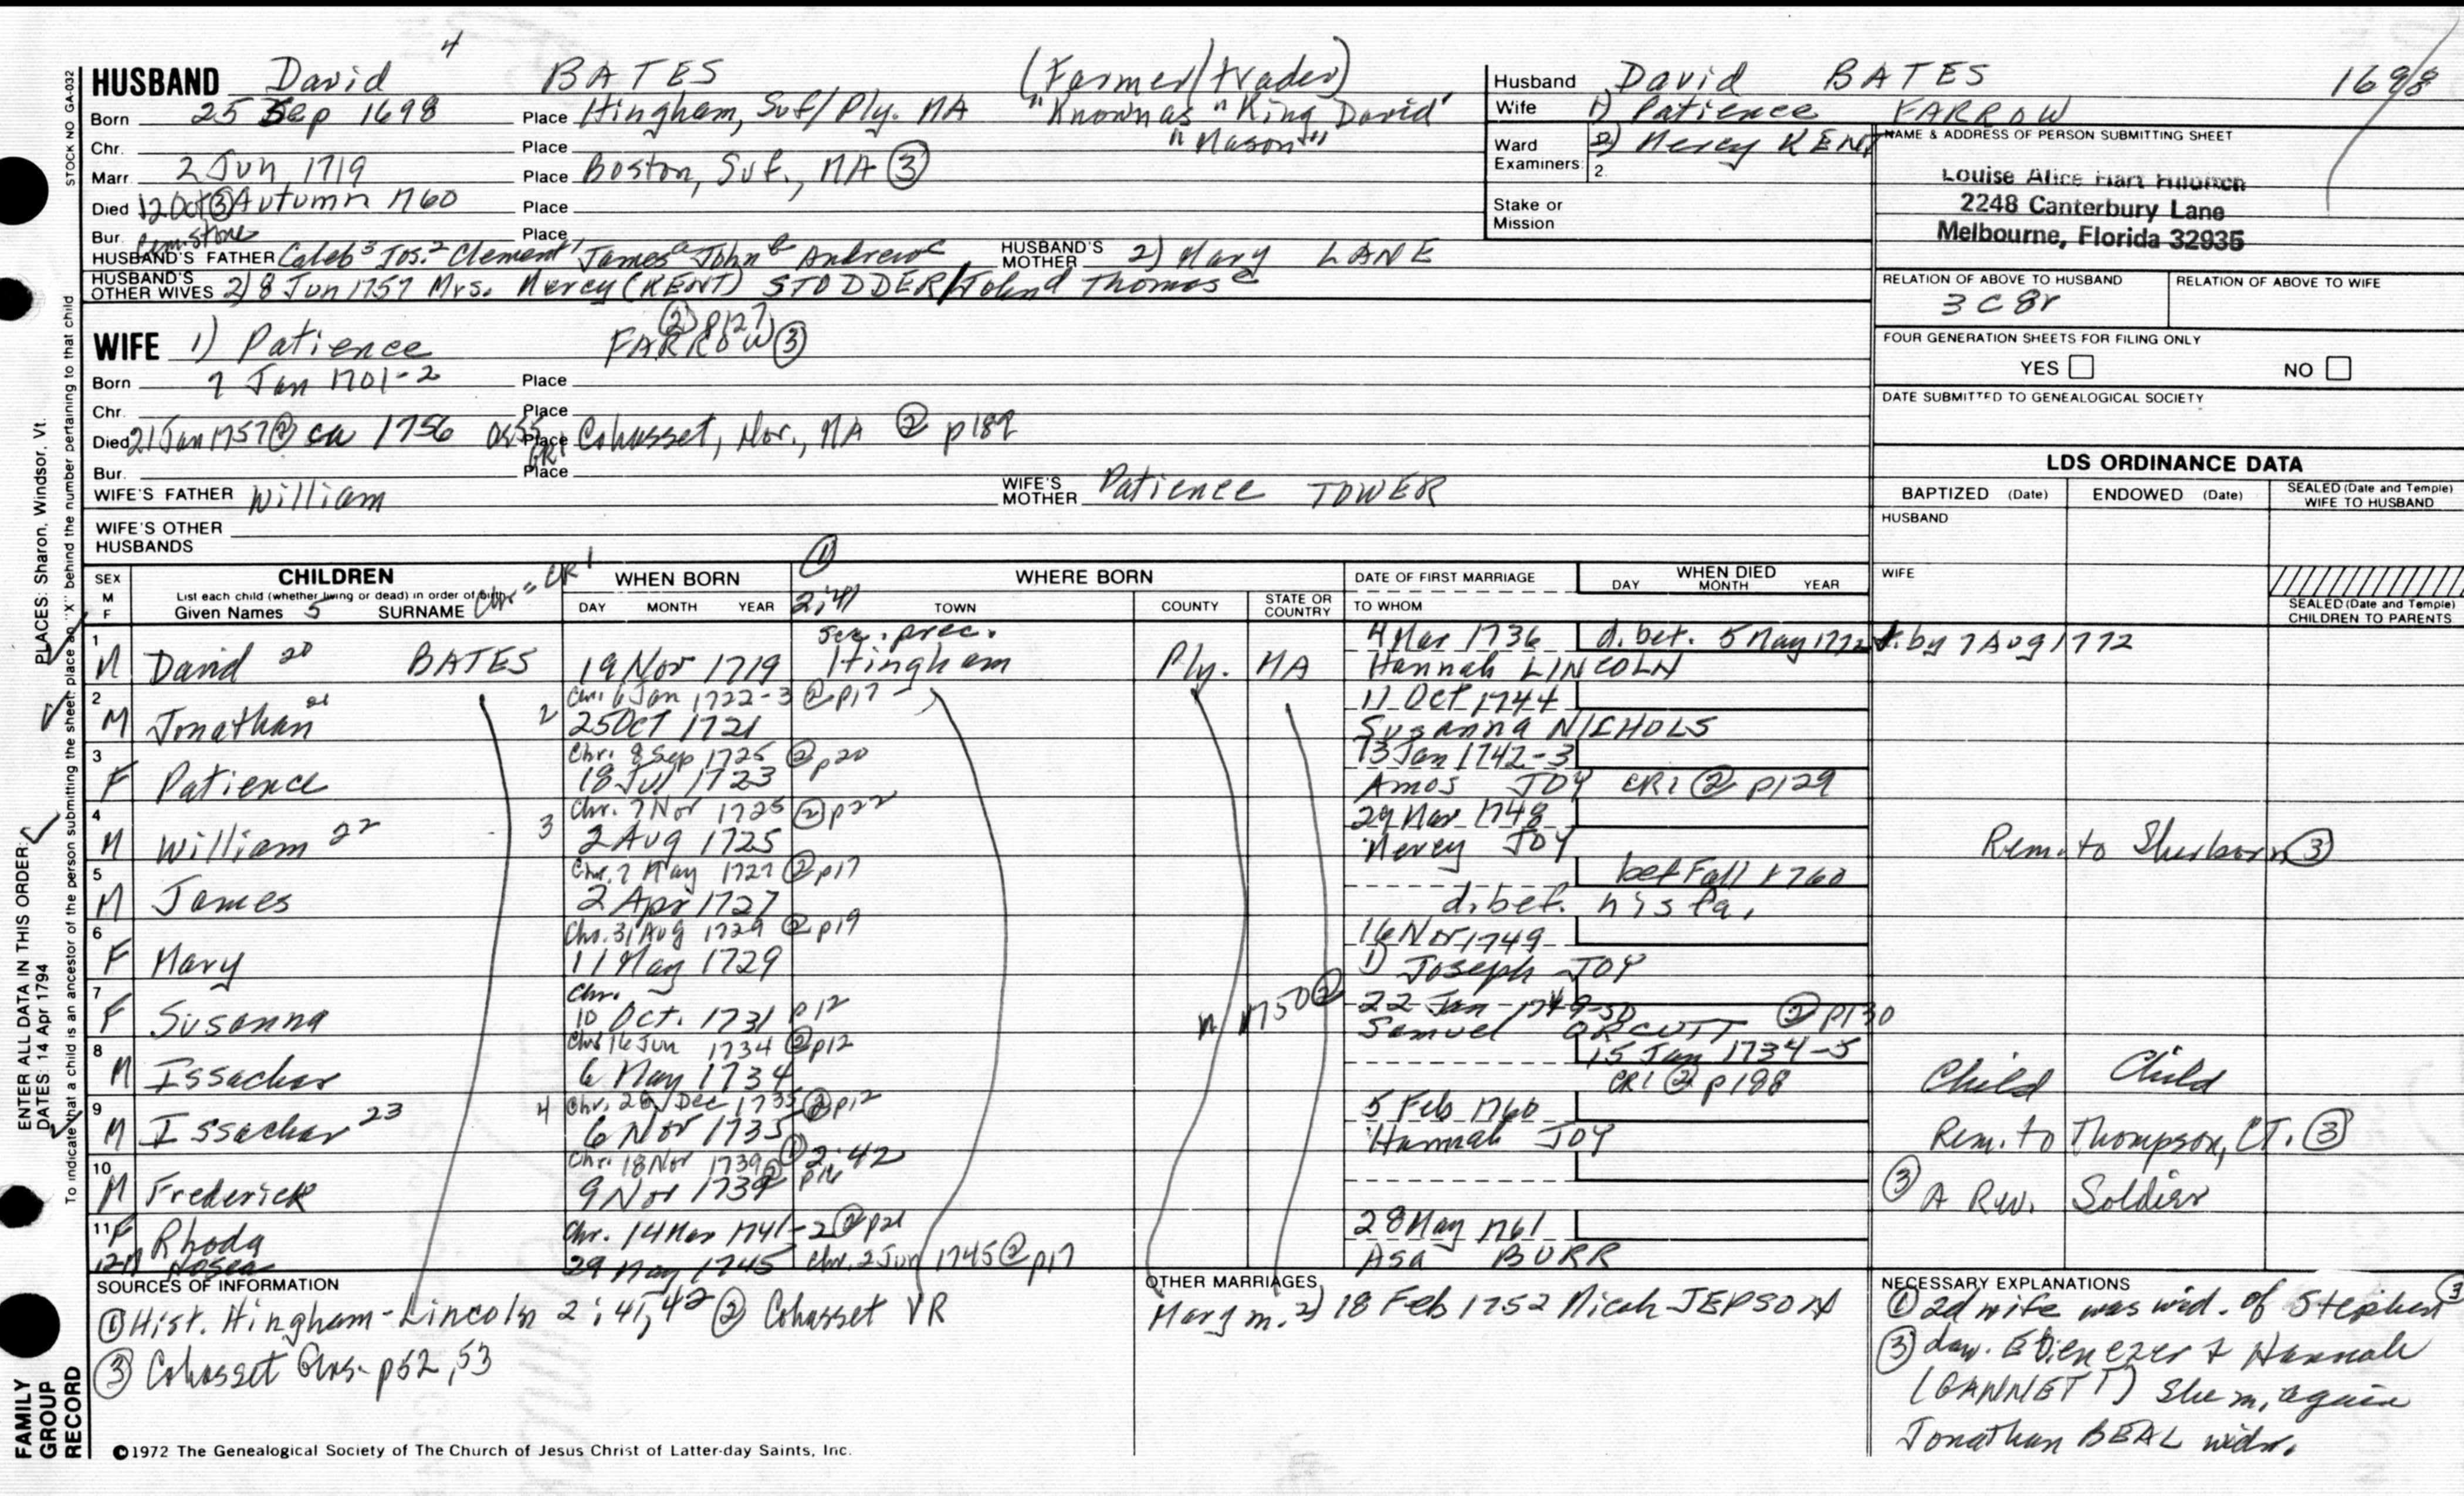 4
HUSBAND David BATES (Farmer/trader)
Born 25 Sep 1698 Place Hingham, Suf/Ply. MA "Known as "King David"
Chr. Place "Mason"
Marr 2 Jun 1719 Place Boston, Suf., MA ③
Died 12 Oct ③ Autumn 1760 Place
Bur. Place
HUSBAND'S FATHER Caleb³ Jos.² Clement¹ James John Andrew HUSBAND'S MOTHER 2) Mary LANE
HUSBAND'S OTHER WIVES 2) 8 Jun 1757 Mrs. Mercy (KENT) STODDER/John Thomas
② p127
WIFE 1) Patience FARROW ③
Born 7 Jan 1701-2 Place
Chr. Place
Died 21 Jan 1757 ② ca 1756 Place Cohasset, Nor., MA ② p189
Bur. Place
WIFE'S FATHER William WIFE'S MOTHER Patience TOWER
WIFE'S OTHER HUSBANDS
Husband David BATES 1698
Wife 1) Patience FARROW
Ward 2) Mercy KENT
Examiners: 2.
Stake or
Mission
NAME & ADDRESS OF PERSON SUBMITTING SHEET
Louise Alice Hart
2248 Canterbury Lane
Melbourne, Florida 32935
RELATION OF ABOVE TO HUSBAND RELATION OF ABOVE TO WIFE
3 C 8r
FOUR GENERATION SHEETS FOR FILING ONLY
YES NO
DATE SUBMITTED TO GENEALOGICAL SOCIETY
LDS ORDINANCE DATA
BAPTIZED (Date) ENDOWED (Date) SEALED (Date and Temple) WIFE TO HUSBAND
HUSBAND
WIFE
SEALED (Date and Temple) CHILDREN TO PARENTS
SEX M F CHILDREN Chr = CR1 WHEN BORN ① WHERE BORN DATE OF FIRST MARRIAGE WHEN DIED
List each child (whether living or dead) in order of birth
Given Names 5 SURNAME DAY MONTH YEAR 2:41 TOWN COUNTY STATE OR COUNTRY TO WHOM DAY MONTH YEAR
sec. prec. 4 Mar 1736 d. bet. 5 May 1772 & by 7 Aug 1772
1 M David 20 BATES 19 Nov 1719 Hingham Ply. MA Hannah LINCOLN
2 Chr. 6 Jan 1722-3 ② p17 11 Oct 1744
M Jonathan 21 2 25 Oct 1721 Susanna NICHOLS
3 Chr. 8 Sep 1725 ② p20 13 Jan 1742-3
F Patience 18 Jul 1723 Amos JOY CR1 ② p129
4 Chr. 7 Nov 1725 ② p22 29 Mar 1748
M William 22 3 2 Aug 1725 Mercy JOY Rem. to Sherborn ③
5 Chr. 7 May 1727 ② p17 bef Fall 1760
M James 2 Apr 1727 d. bef. his fa.
6 Chr. 31 Aug 1729 ② p19 16 Nov 1749
F Mary 11 May 1729 1) Joseph JOY
7 Chr. m 1750 ② 22 Jan 1749-50
F Susanna 10 Oct. 1731 p12 Samuel ORCUTT ② p130
8 Chr 16 Jun 1734 ② p12 15 Jan 1734-5
M Issachar 6 May 1734 CR1 ② p188 Child Child
9 4 Chr. 28 Dec 1735 ② p12 5 Feb 1760
M Issachar 23 6 Nov 1735 Hannah JOY Rem. to Thompson, CT. ③
10 Chr. 18 Nov 1739 ① 2:42
M Frederick 9 Nov 1739 p16 ③ A Rev. Soldier
11 F Rhoda Chr. 14 Mar 1741-2 ② p21 28 May 1761
12 M Hosea 29 May 1745 Chr. 2 Jun 1745 ② p17 Asa BURR
SOURCES OF INFORMATION
① Hist. Hingham-Lincoln 2:41,42 ② Cohasset VR
③ Cohasset Gens. p52, 53
OTHER MARRIAGES
Mary m. 2) 18 Feb 1752 Micah JEPSON
NECESSARY EXPLANATIONS
① 2d wife was wid. of Stephen ③
③ dau. Ebenezer & Hannah
(GANNETT) She m. again
Jonathan BEAL widr.
©1972 The Genealogical Society of The Church of Jesus Christ of Latter-day Saints, Inc.
STOCK NO GA-032
ENTER ALL DATA IN THIS ORDER:
DATES: 14 Apr 1794
PLACES: Sharon, Windsor, Vt.
To indicate that a child is an ancestor of the person submitting the sheet, place an "X" behind the number pertaining to that child
FAMILY
GROUP
RECORD